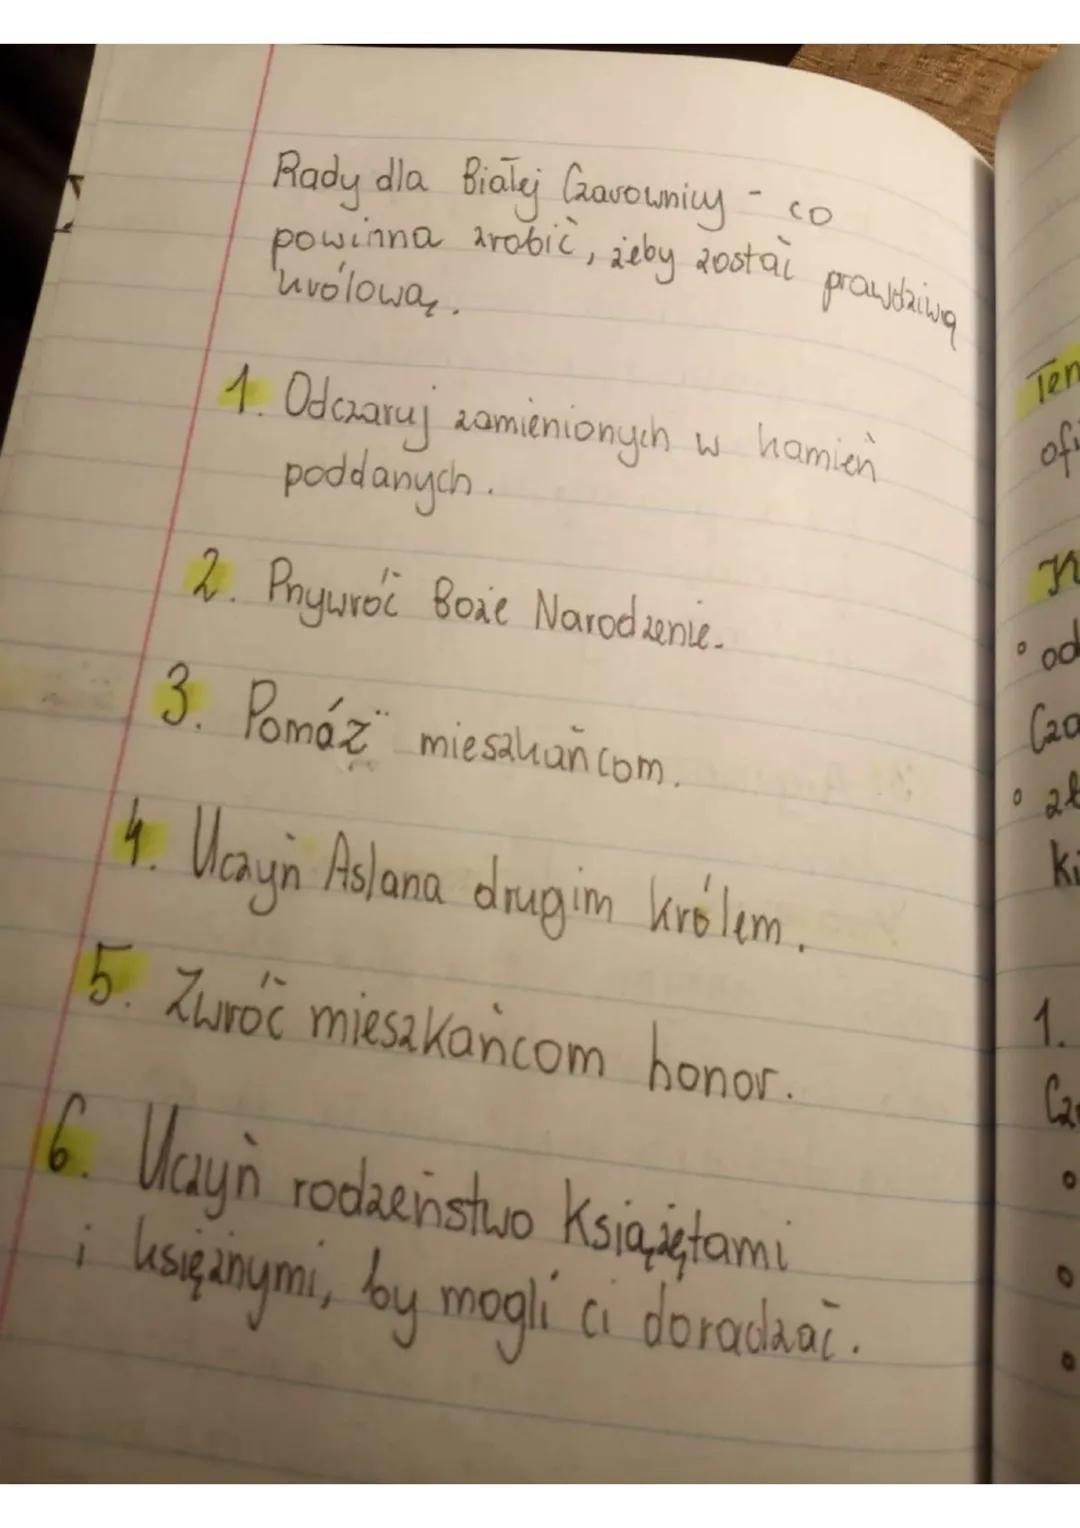 Rady dla Białej Czarownicy - co
powinna zrobić, żeby zostać prawdziwą
królową.
1. Odczaruj zamienionych w kamień
poddanych.
2. Przywróć Boże Narodzenie.
3. Pomóż mieszkańcom.
4. Uczyń Aslana drugim królem.
5. Zwróć mieszkańcom honor.
6. Uczyń rodzeństwo książętami
i księżnymi, by mogli ci doradzać.
Ten
od
1.